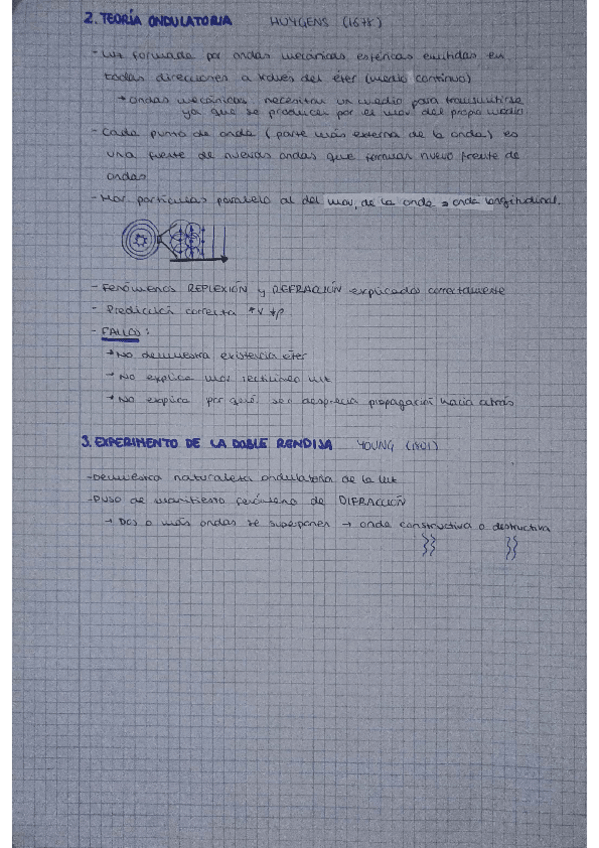 2. TEORÍA ONDULATORIA HUYGENS (1678)
- Luz formada por ondas mecánicas esféricas emitidas en
todas direcciones a través del éter (medio continuo)
→ ondas mecánicas necesitan un medio para transmitirse
ya que se producen por el mov. del propio medio
- Cada punto de onda (parte más externa de la onda) es
una fuente de nuevas ondas que forman nuevo frente de
ondas
- Mov. partículas paralelo al del mov. de la onda → onda longitudinal.
- Fenómenos REFLEXIÓN y REFRACCIÓN explicados correctamente
- Predicción correcta
- FALLOS:
→ No demuestra existencia éter
→ No explica mov rectilíneo luz
→ No explica por qué se desprecia propagación hacia atrás
3. EXPERIMENTO DE LA DOBLE RENDIJA YOUNG (1801)
- Demuestra naturaleza ondulatoria de la luz
- Puso de manifiesto fenómeno de DIFRACCIÓN
→ Dos o más ondas se superponen → onda constructiva o destructiva